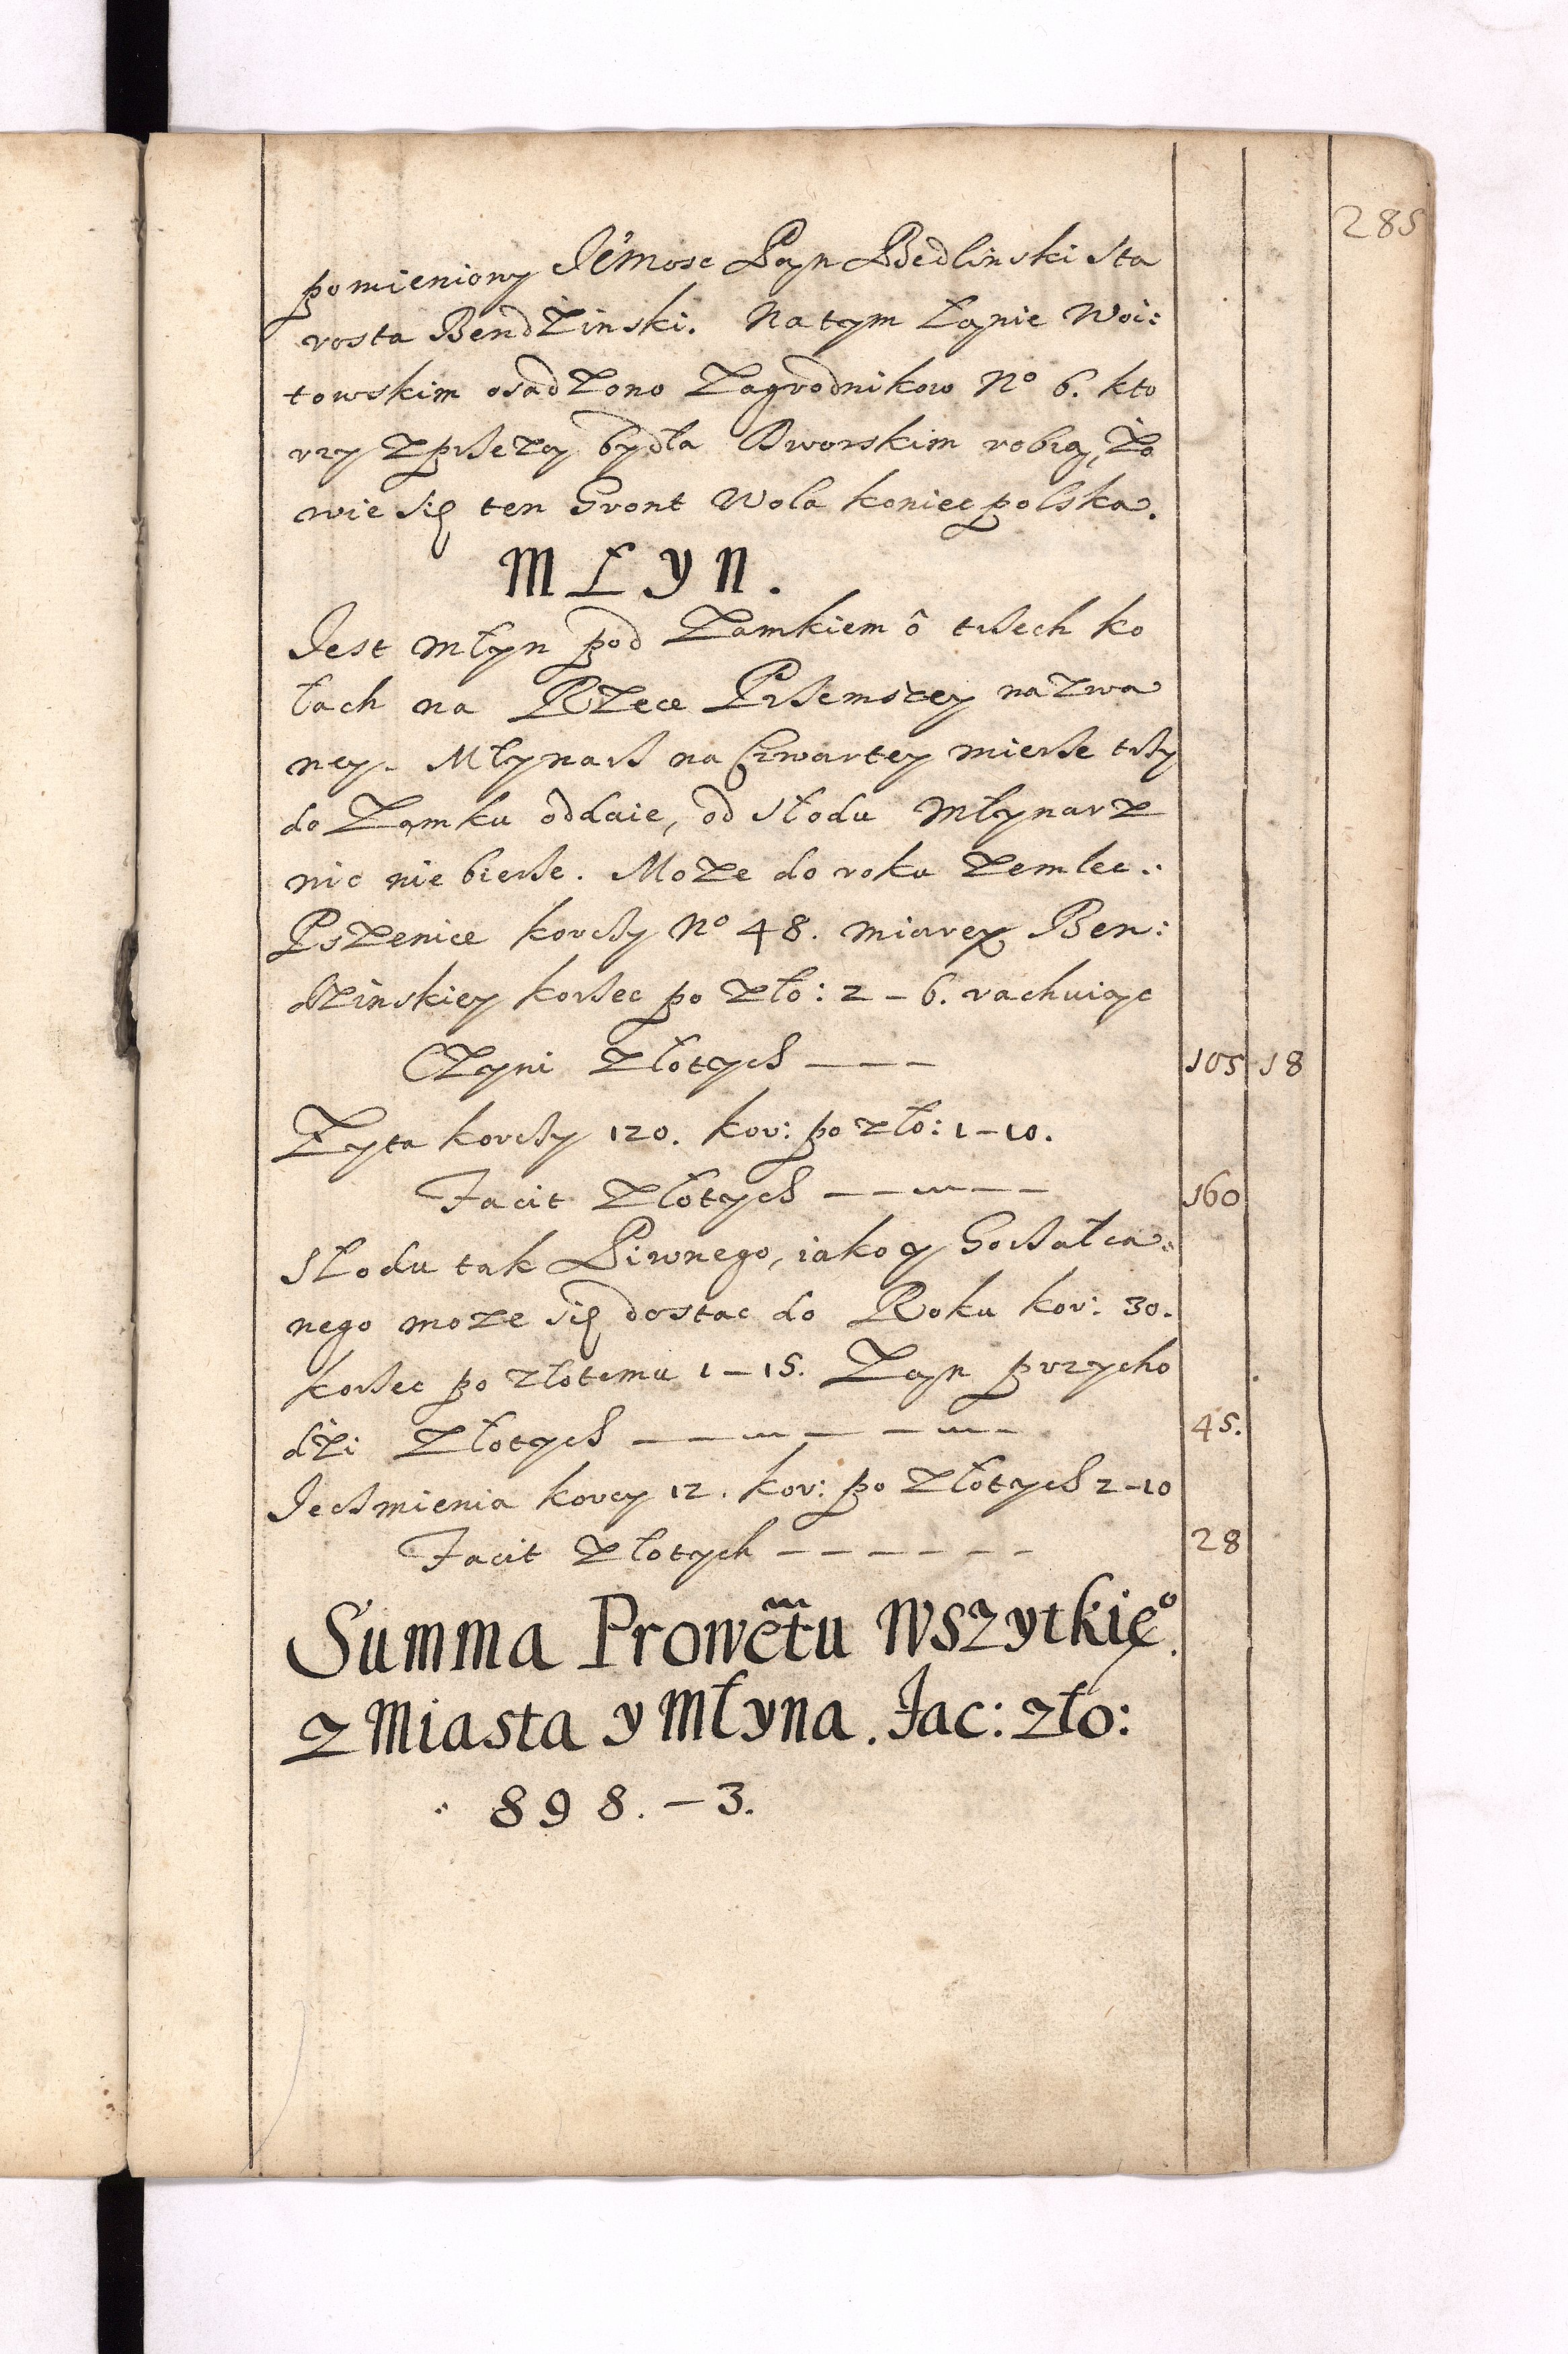 285
pomieniony Jemosc Pan Bedlinski Sta
rosta Bendzinski. Na tym Łanie Woi:
towskim osadzono Zagrodnikow No 6. kto
rzy zprzeżą bydła Dworskim robią, Zo
wie się ten Gront Wola koniecpolska.
MŁYN.
Jest Młyn pod Zamkiem ô trzech ko
łach na Rzece Przemszey nazwa
ney. Młynarz na Czwartey mierze trzy
do Zamku oddaie, od Słodu Młynarz
nic nie bierze. Moze do roku zemlec:
Pszenice korczy No 48. miarą Ben:
dzinskiey korzec po zło: 2 - 6. rachuiąc
Czyni złotych - - - 105 18
Zyta korczy 120. kor: po zło: 1-10.
Facit złotych - - - - 160
Słodu tak Piwnego, iako y Gorzałcza:
nego moze się dostac do Roku kor: 30.
korzec po złotemu 1-15. Zań przycho
dzi złotych - - - - - - 45.
Jeczmienia korcy 12. kor: po złotych 2-10
Facit złotych - - - - - - 28
Summa Prowētu Wszytkieo.
z Miasta y Młyna. Fac: zło:
898. - 3.